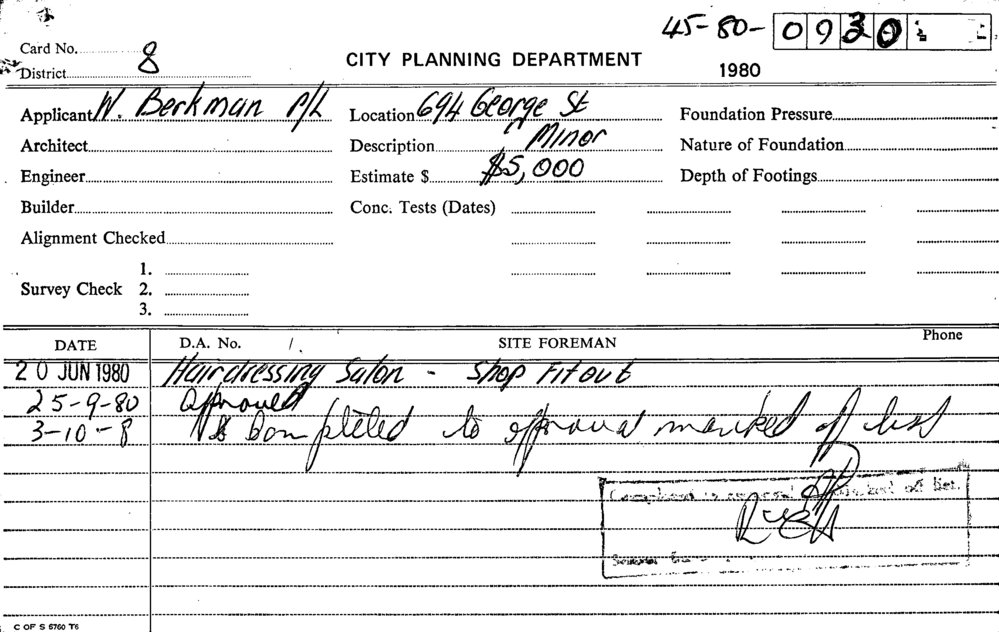 45-80-0920
Card No. 8
District
CITY PLANNING DEPARTMENT
1980
Applicant W. Berkman P/L Location 694 George St Foundation Pressure
Architect Description Minor Nature of Foundation
Engineer Estimate $ $5,000 Depth of Footings
Builder Conc. Tests (Dates)
Alignment Checked
1.
Survey Check 2.
3.
DATE D.A. No. /. SITE FOREMAN Phone
20 JUN 1980 Hairdressing Salon - Shop Fitout
25-9-80 Approved
3-10-8 Completed to approval marked off list
Completed to approval marked off list.
C OF S 5760 T6